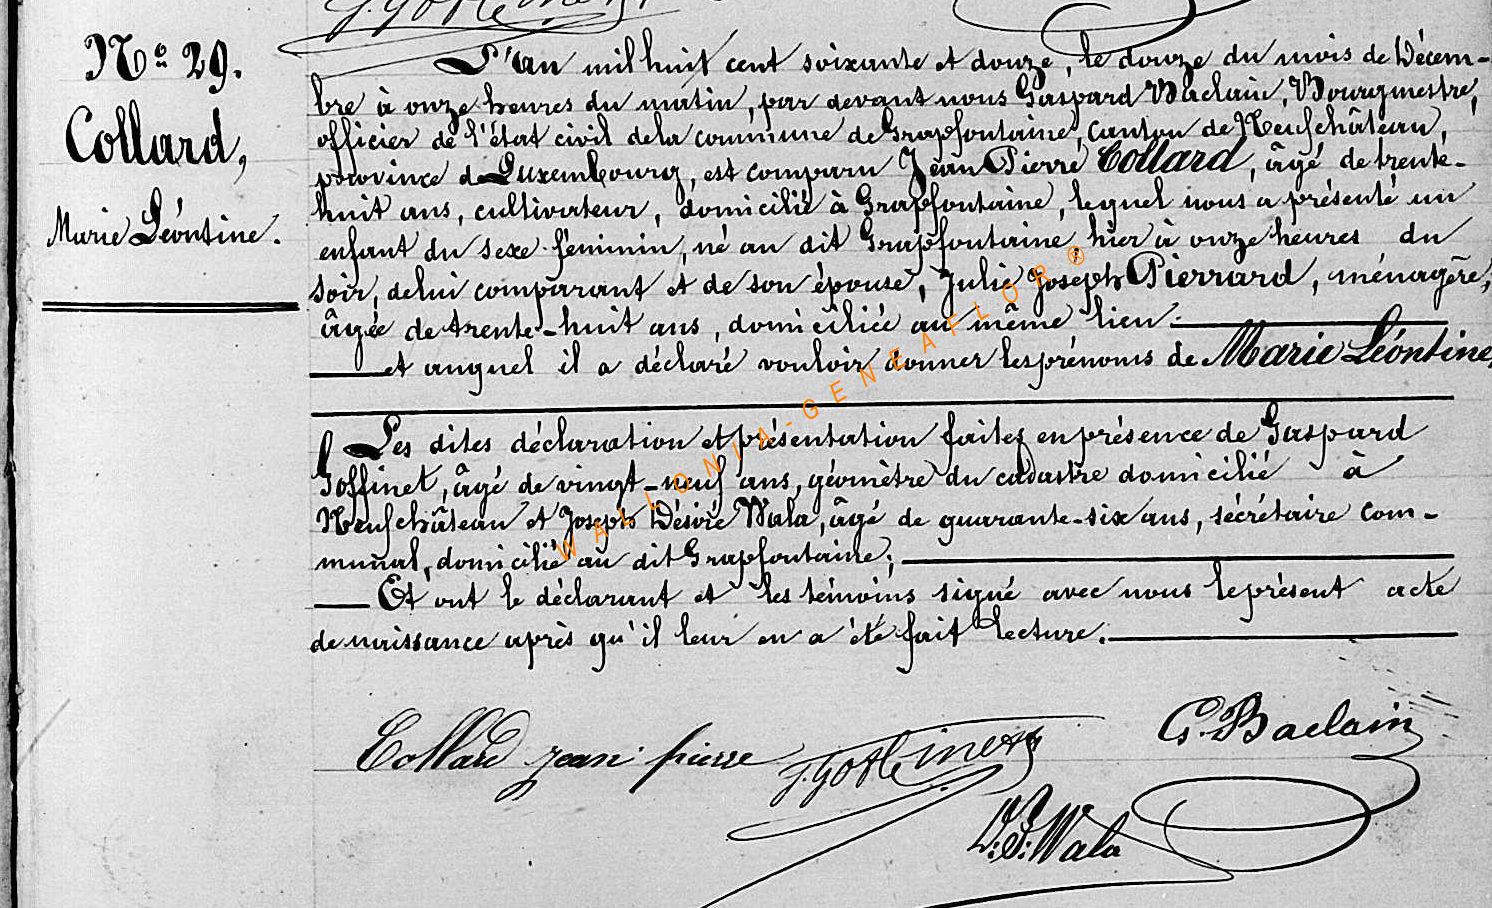 No 29.
Collard,
Marie Léontine.
L'an mil huit cent soixante et douze, le douze du mois de Décem-
bre à onze heures du matin, par devant nous Gaspard Baclain, Bourgmestre,
officier de l'état civil de la commune de Grapfontaine, canton de Neufchâteau,
province de Luxembourg, est comparu Jean Pierre Collard, âgé de trente-
huit ans, cultivateur, domicilié à Grapfontaine, lequel nous a présenté un
enfant du sexe féminin, né au dit Grapfontaine, hier à onze heures du
soir, de lui comparant et de son épouse, Julie Joseph Pierrard, ménagère,
âgée de trente-huit ans, domiciliée au même lieu.
et auquel il a déclaré vouloir donner les prénoms de Marie Léontine,
Les dites déclaration et présentation faites en présence de Gaspard
Goffinet, âgé de vingt-neuf ans, géomètre du cadastre domicilié à
Neufchâteau et Joseph Désiré Wala, âgé de quarante-six ans, sécrétaire com-
munal, domicilié au dit Grapfontaine;
Et ont le déclarant et les témoins signé avec nous le présent acte
de naissance après qu'il leur en a été fait lecture.
WALLONIA-GENEAFLOR ®
Collard jean pierre
G. Baclain
D. J. Wala